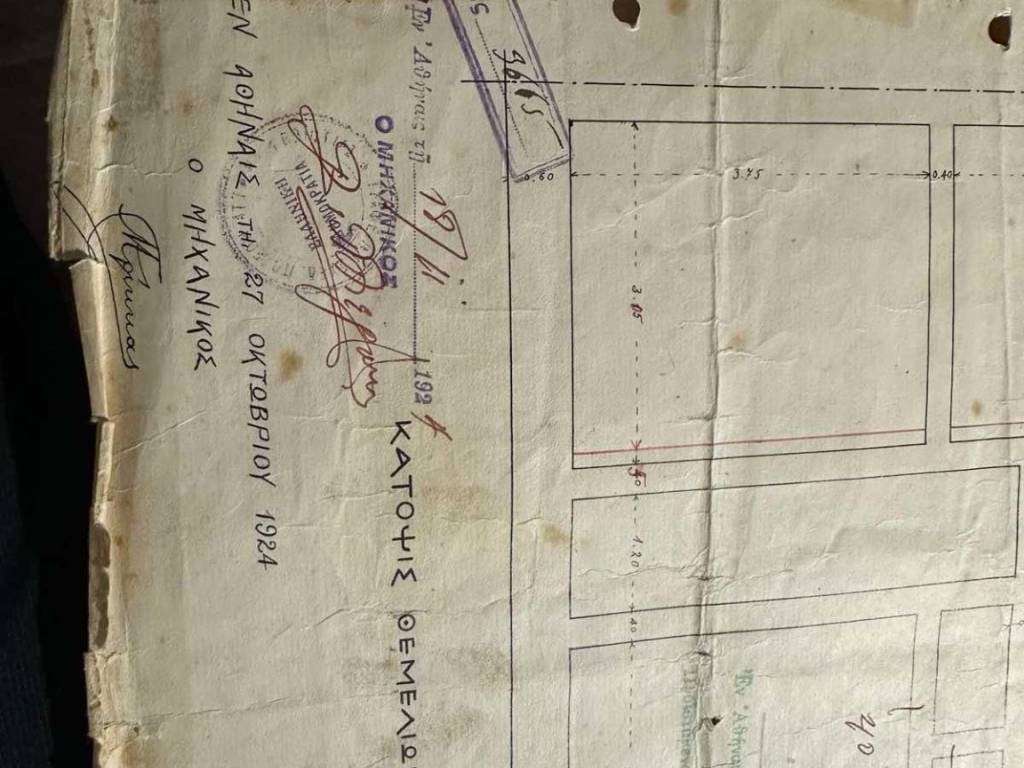 ΚΑΤΟΨΙΣ ΘΕΜΕΛΙΩ
Ἐν Ἀθήναις τῇ 19/11 1924
Ο ΜΗΧΑΝΙΚΟΣ
ΕΛΛΗΝΙΚΗ
ΔΗΜΟΚΡΑΤΙΑ
ΕΝ ΑΘΗΝΑΙΣ ΤΗ 27 ΟΚΤΩΒΡΙΟΥ 1924
Ο ΜΗΧΑΝΙΚΟΣ
0.60
3.75
0.40
3.05
1.20
40
Ἐν Ἀθήναι
40